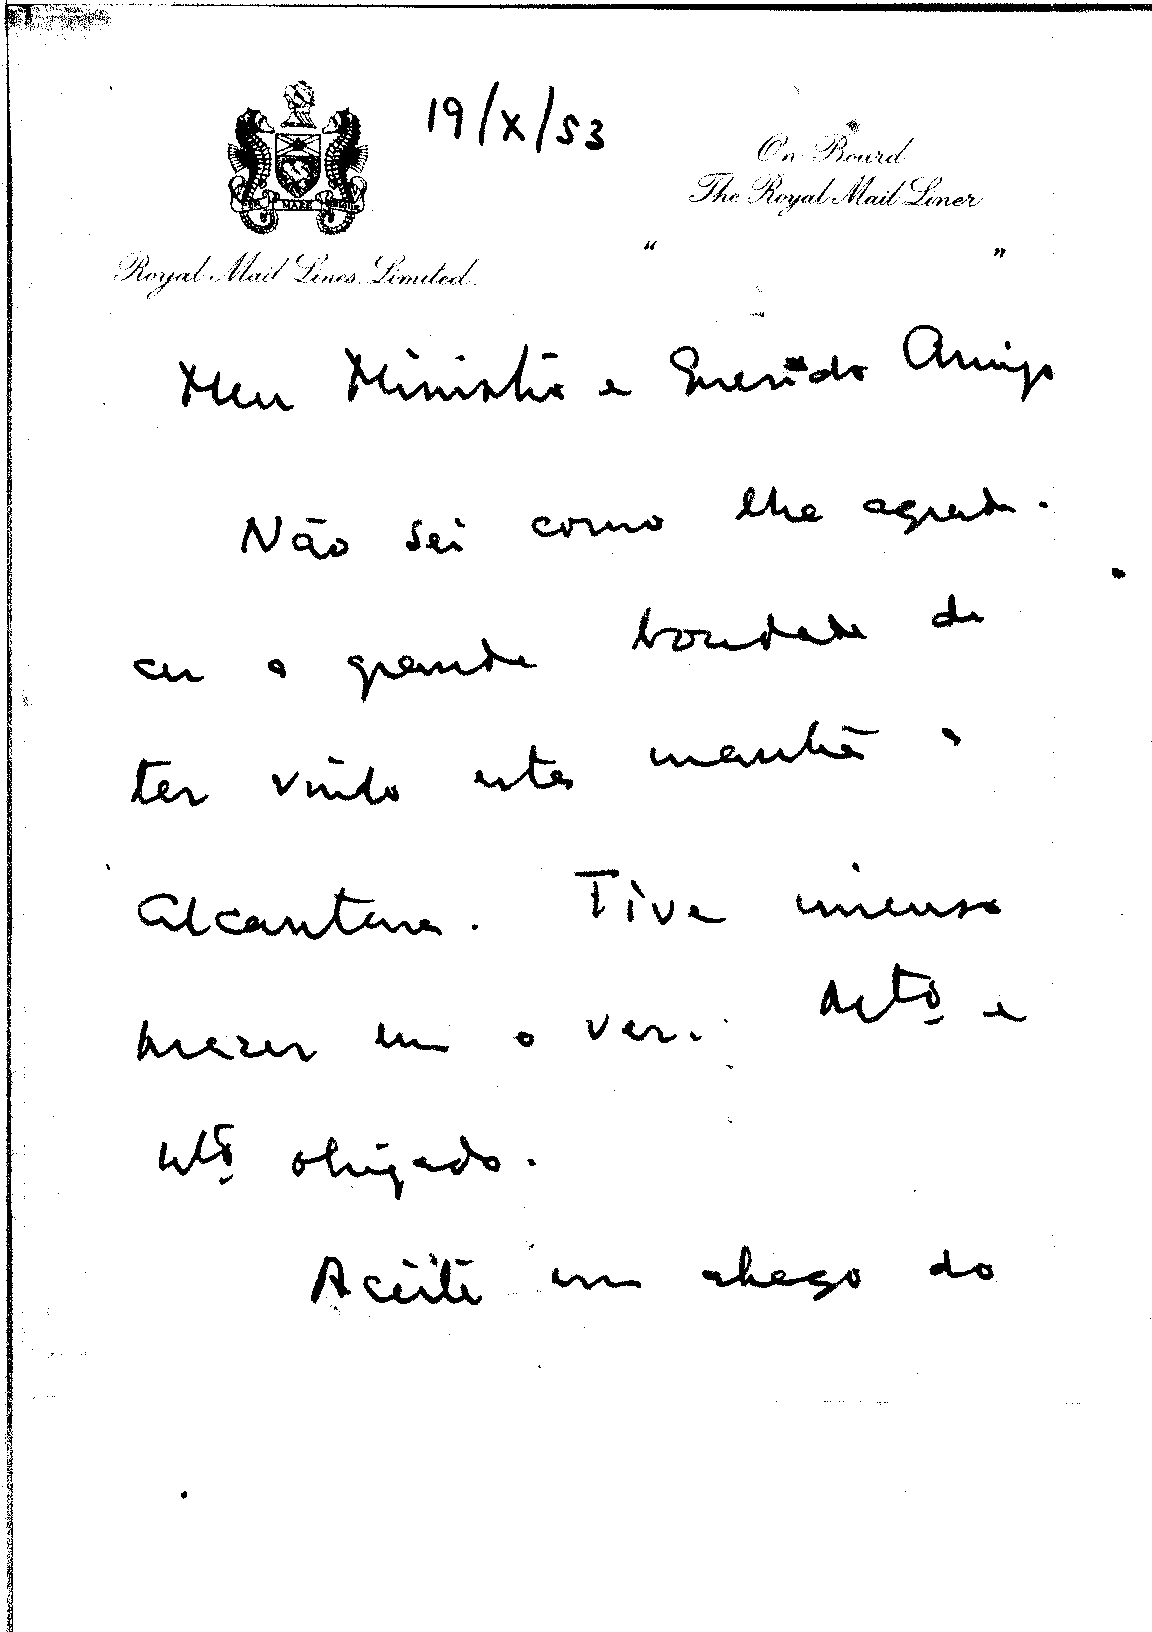 19/X/53
On Board
The Royal Mail Liner
" "
Royal Mail Lines, Limited.
Meu Ministro e Querido Amigo
Não sei como lhe agrade-
cer a grande bondade de
ter vindo esta manhã a
Alcantara. Tive imenso
prazer em o ver. Mtº e
mtº obrigado.
Aceite um abraço do